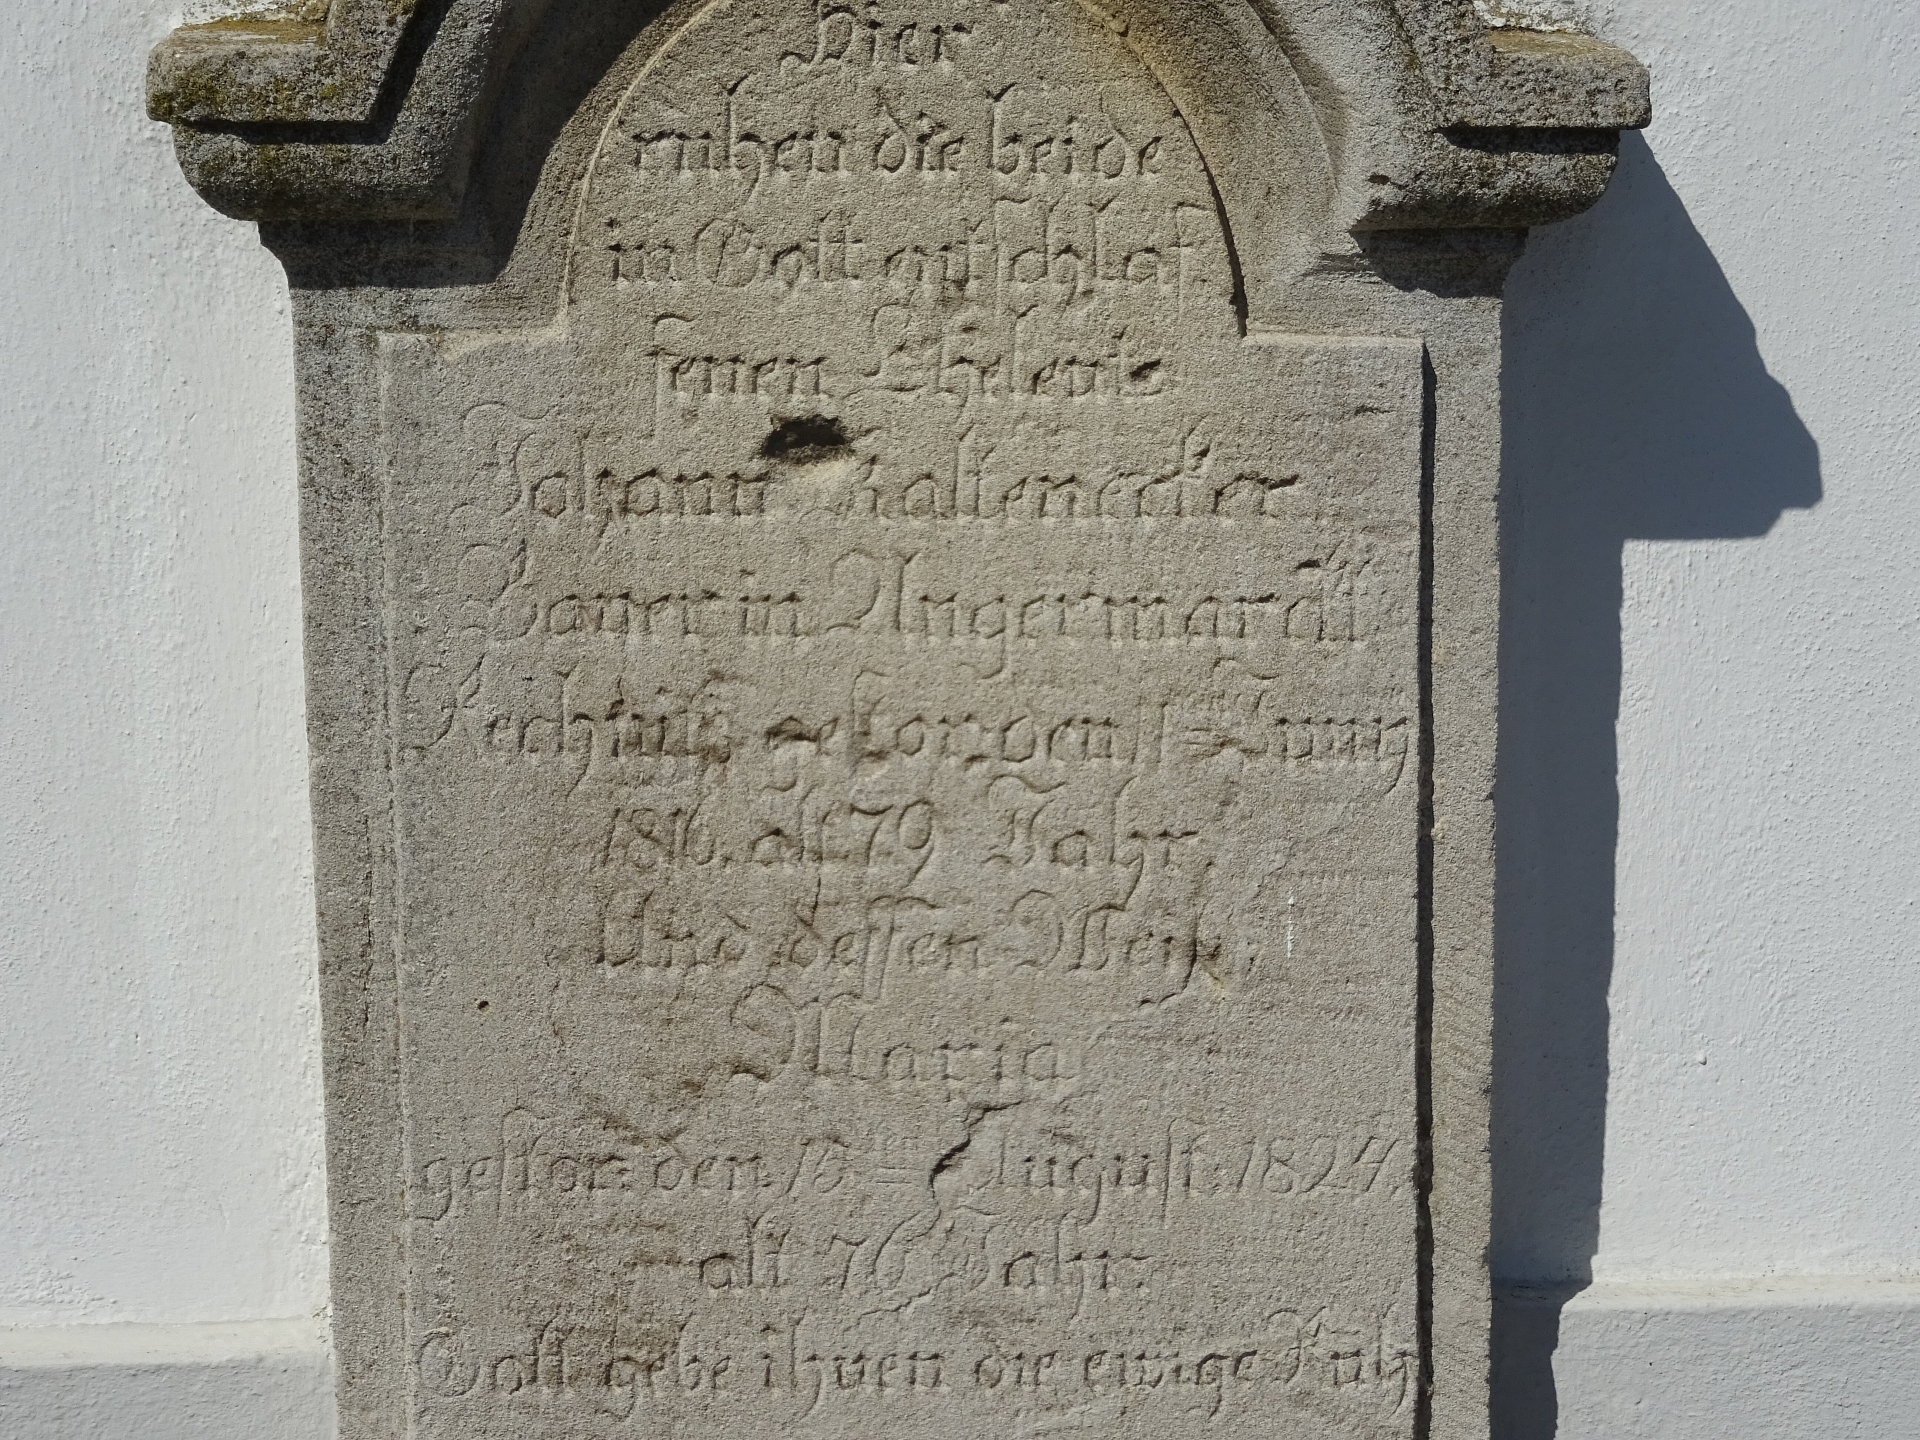 Hier
ruhen die beide
in Gott entschlaf
fenen Eheleut
Johann Kaltenecker
Bauer in Angermarckt
Rechtuiß gestor. den 11 Juny
1816. alt 79 Jahr,
Und dessen Weib,
Maria
gestor. den 18 August. 1824.
alt 76 Jahr.
Gott gebe ihnen die ewige Ruh